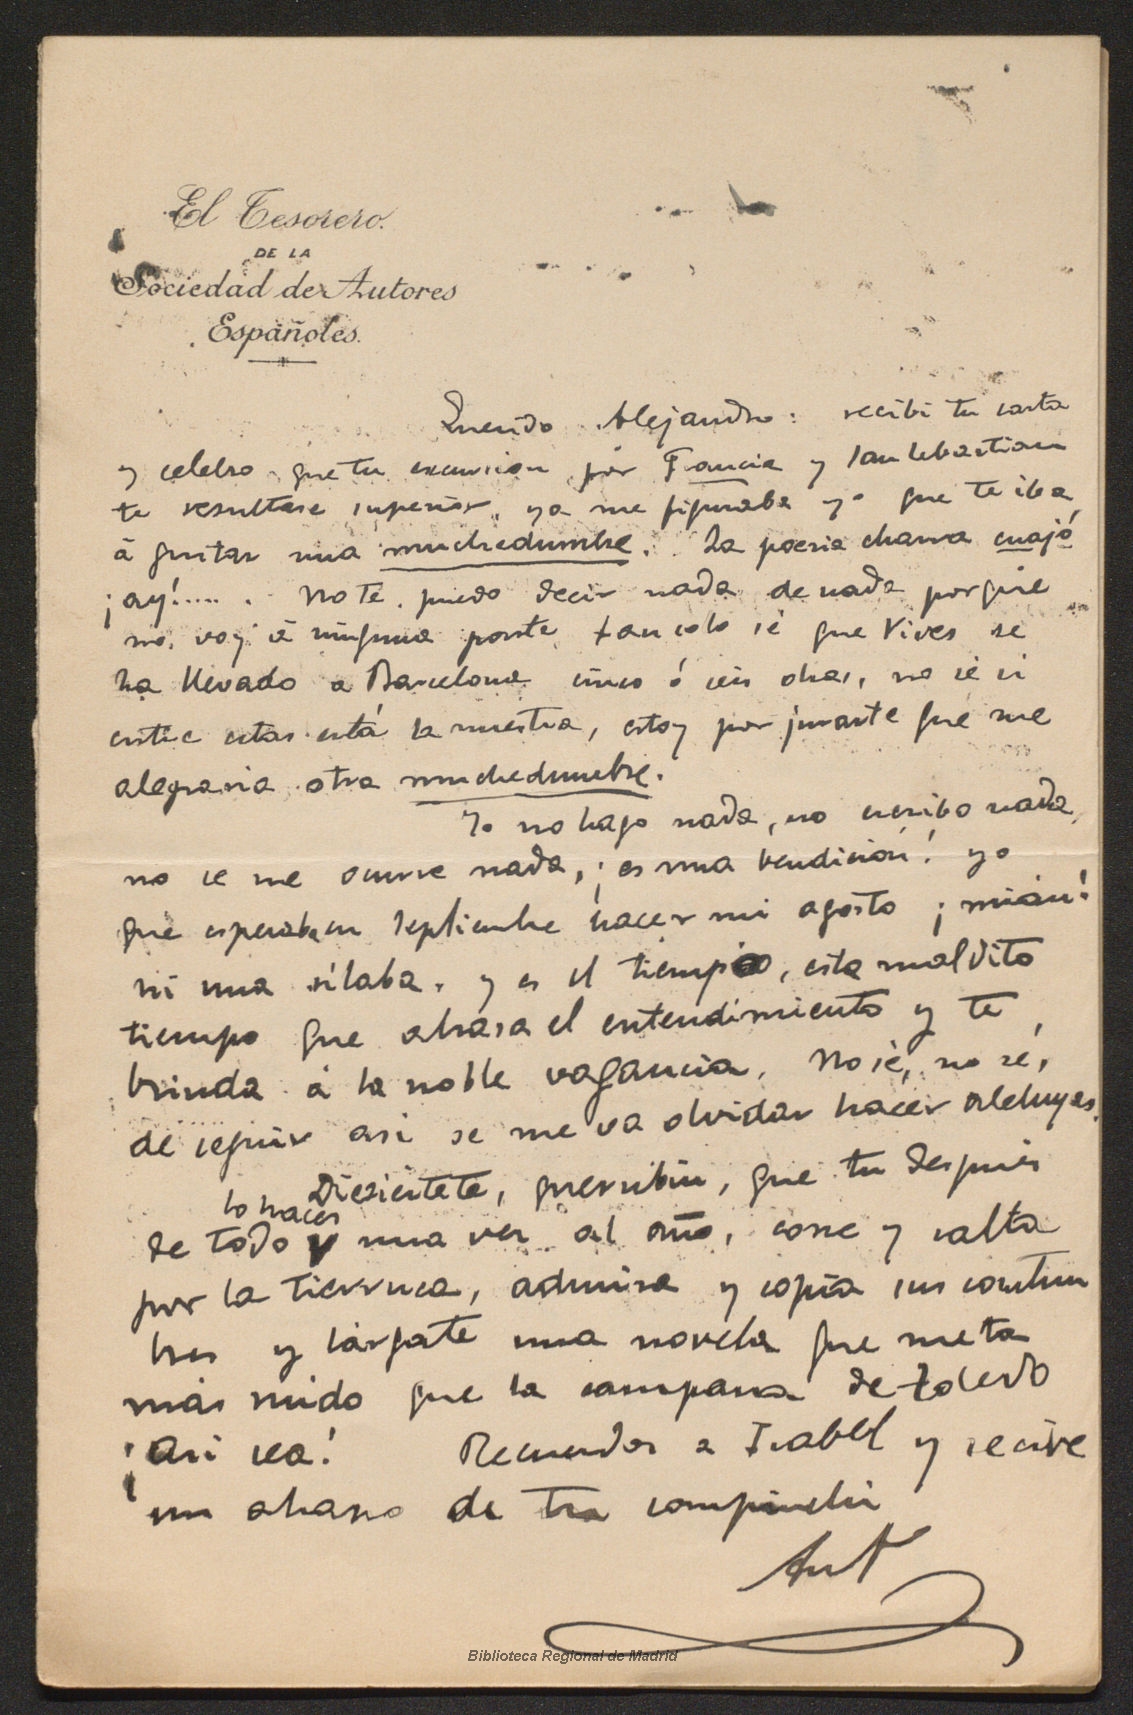 El Tesorero
DE LA
Sociedad de Autores
Españoles.
Querido Alejandro: recibi tu carta
y celebro que tu excursion por Francia y San Sebastian
te resultase superior, ya me figuraba yo que te iba
á gustar una muchedumbre. La poesia charra cuajó
¡ay!..... . No te puedo decir nada de nada porque
no voy á ninguna parte tan solo sé que Vives se
ha llevado a Barcelona cinco ó seis obras, no sé si
entre estas está la nuestra, estoy por jurarte que me
alegraria otra muchedumbre.
Yo no hago nada, no escribo nada,
no se me ocurre nada, ¡es una bendición! yo
que esperaba en Septiembre hacer mi agosto ¡miáu!
ni una sílaba. y es el tiempo, este maldito
tiempo que abrasa el entendimiento y te
brinda á la noble vagancia. No sé, no sé,
de seguir asi se me va olvidar hacer aleluyas.
Diezisietete, querubin, que tu después
lo haces
de todo una vez al año, corre y salta
por la tierruca, admira y copia sus costum
bres y lárgate una novela que meta
más ruido que la campana de toledo
¡Asi sea! Recuerdos a Isabel y recive
un abrazo de tu compinchi
Ant
Biblioteca Regional de Madrid